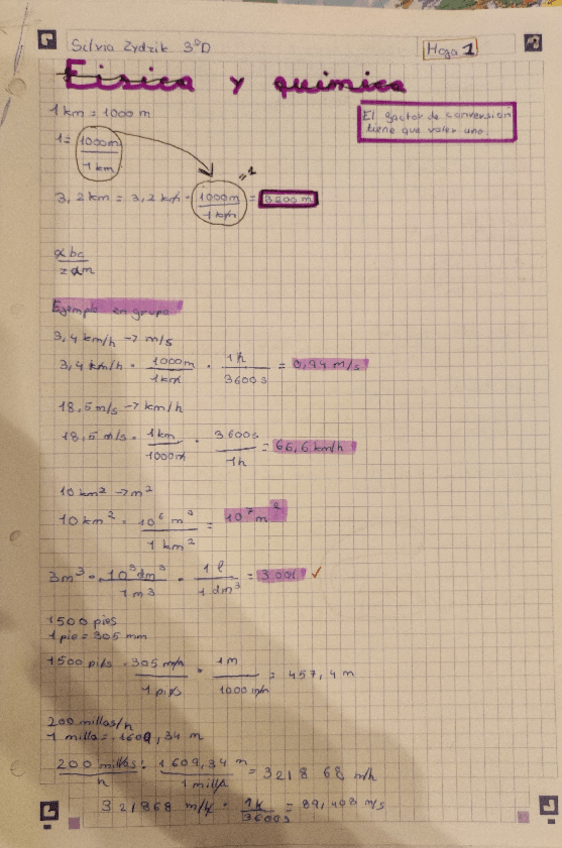 Silvia Zydzik 3ºD
Hoga 1
Fisica y quimica
1 km = 1000 m
El factor de conversión
tiene que valer uno.
1 = 1000m / 1 km
3,2 km = 3,2 km · 1000m / 1 km = 3200 m
= 1
Ejemplo en grupo
3,4 km/h → m/s
3,4 km/h · 1000m / 1km · 1h / 3600s = 0,94 m/s
18,5 m/s → km/h
18,5 m/s · 1km / 1000m · 3600s / 1h = 66,6 km/h
10 km² → m²
10 km² · 10⁶ m² / 1 km² = 10⁷ m²
3m³ · 10³ dm³ / 1m³ · 1 l / 1 dm³ =
1500 pies
1 pie = 305 mm
1500 pies · 305 mm / 1 pies · 1m / 1000 mm = 457,4 m
200 millas/h
1 milla = 1609,34 m
200 millas / h · 1609,34 m / 1 milla = 321868 m/h
321868 m/h · 1h / 3600s = 89,408 m/s